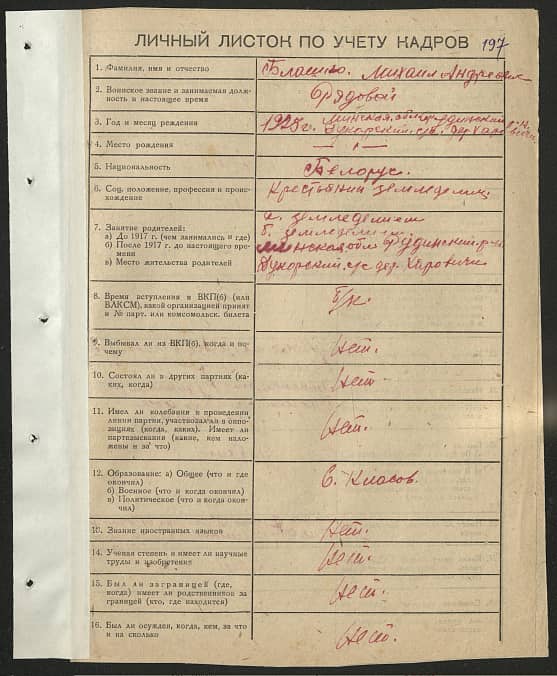 ЛИЧНЫЙ ЛИСТОК ПО УЧЕТУ КАДРОВ 197
1. Фамилия, имя и отчество
Михаил
2. Воинское звание и занимаемая долж-
ность в настоящее время
Рядовой
3. Год и месяц рождения
1925 г. Минская обл.
Дукорский с/с. дер.
4. Место рождения
— " —
5. Национальность
Белорус.
6. Соц. положение, профессия и проис-
хождение
Крестьянин земледелец
7. Занятие родителей:
а) До 1917 г. (чем занимались и где)
б) После 1917 г. до настоящего вре-
мени
в) Место жительства родителей
а. земледелием
б. земледелием.
Минская обл р-н
Дукорский с/с дер.
8. Время вступления в ВКП(б) (или
ВЛКСМ), какой организацией принят
и № парт. или комсомольск. билета
б/п.
9. Выбывал ли из ВКП(б), когда и по-
чему
Нет.
10. Состоял ли в других партиях (ка-
ких, когда)
Нет
11. Имел ли колебания в проведении
линии партии, участвовал ли в оппо-
зициях (когда, каких). Имеет ли
партвзыскания (какие, кем нало-
жены и за что)
Нет.
12. Образование: а) Общее (что и где
окончил)
б) Военное (что и когда окончил)
в) Политическое (что и когда окон-
чил)
6. Класов.
13. Знание иностранных языков
Нет.
14. Ученая степень и имеет ли научные
труды и изобретения
Нет.
15. Был ли заграницей (где,
когда) имеет ли родственников за
границей (кто, где находится)
Нет.
16. Был ли осужден, когда, кем, за что
и на сколько
Нет.